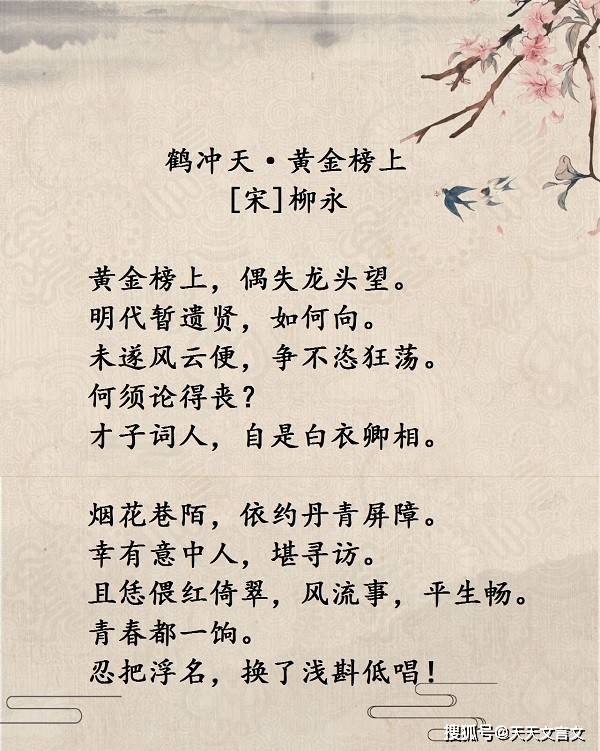 鹤冲天·黄金榜上
[宋]柳永
黄金榜上，偶失龙头望。
明代暂遗贤，如何向。
未遂风云便，争不恣狂荡。
何须论得丧？
才子词人，自是白衣卿相。
烟花巷陌，依约丹青屏障。
幸有意中人，堪寻访。
且恁偎红倚翠，风流事，平生畅。
青春都一饷。
忍把浮名，换了浅斟低唱！
搜狐号@天天文言文